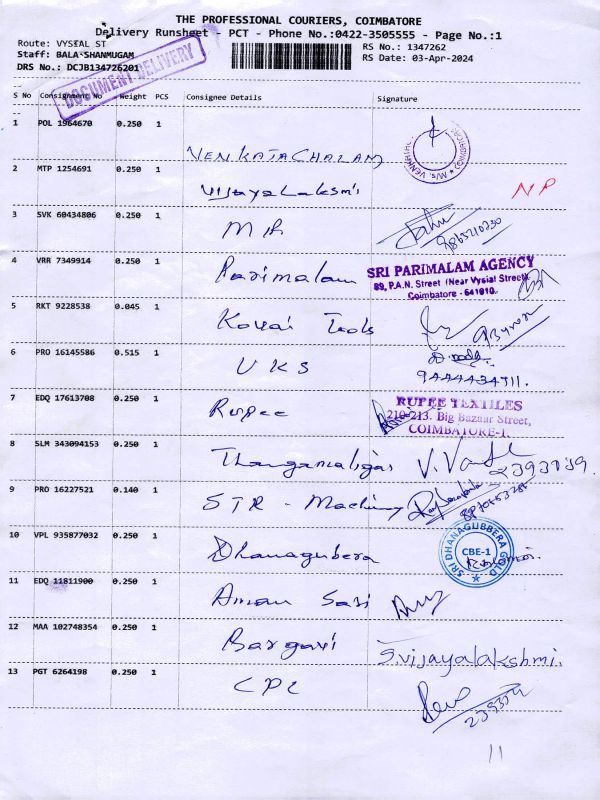 THE PROFESSIONAL COURIERS, COIMBATORE
Delivery Runsheet - PCT - Phone No.:0422-3505555 - Page No.:1
Route: VYSIAL ST
RS No.: 1347262
Staff: BALA SHANMUGAM
RS Date: 03-Apr-2024
DRS No.: DCJB134726201
DOCUMENT DELIVERY
S No Consignment No Weight PCS Consignee Details Signature
1 POL 1964670 0.250 1
VENKATACHALAM
2 MTP 1254691 0.250 1
Vijayalaksmi NP
3 SVK 60434806 0.250 1
4 VRR 7349914 0.250 1
Parimalam
SRI PARIMALAM AGENCY
89, P.A.N. Street (Near Vysial Street)
Coimbatore - 641010.
5 RKT 9228538 0.045 1
Kovai Tools
6 PRO 16145586 0.515 1
UKS
7 EDQ 17613708 0.250 1
Rupee
RUPEE TEXTILES
210-213. Big Bazaar Street,
COIMBATORE-1.
8 SLM 343094153 0.250 1
Thangamaligai
9 PRO 16227521 0.140 1
STR - Machinery
10 VPL 935877032 0.250 1
Dhanagubera
SRI DHANAGUBBERA GOLD
CBE-1
11 EDQ 11811900 0.250 1
Aman Sari
12 MAA 102748354 0.250 1
Bargavi S.vijayalakshmi.
13 PGT 6264198 0.250 1
CPC
11